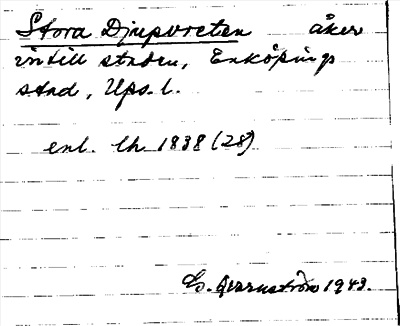 Stora Djupvreten åker
intill staden, Enköpings
stad, Ups. l.
enl. lh 1838 (28)
1943.